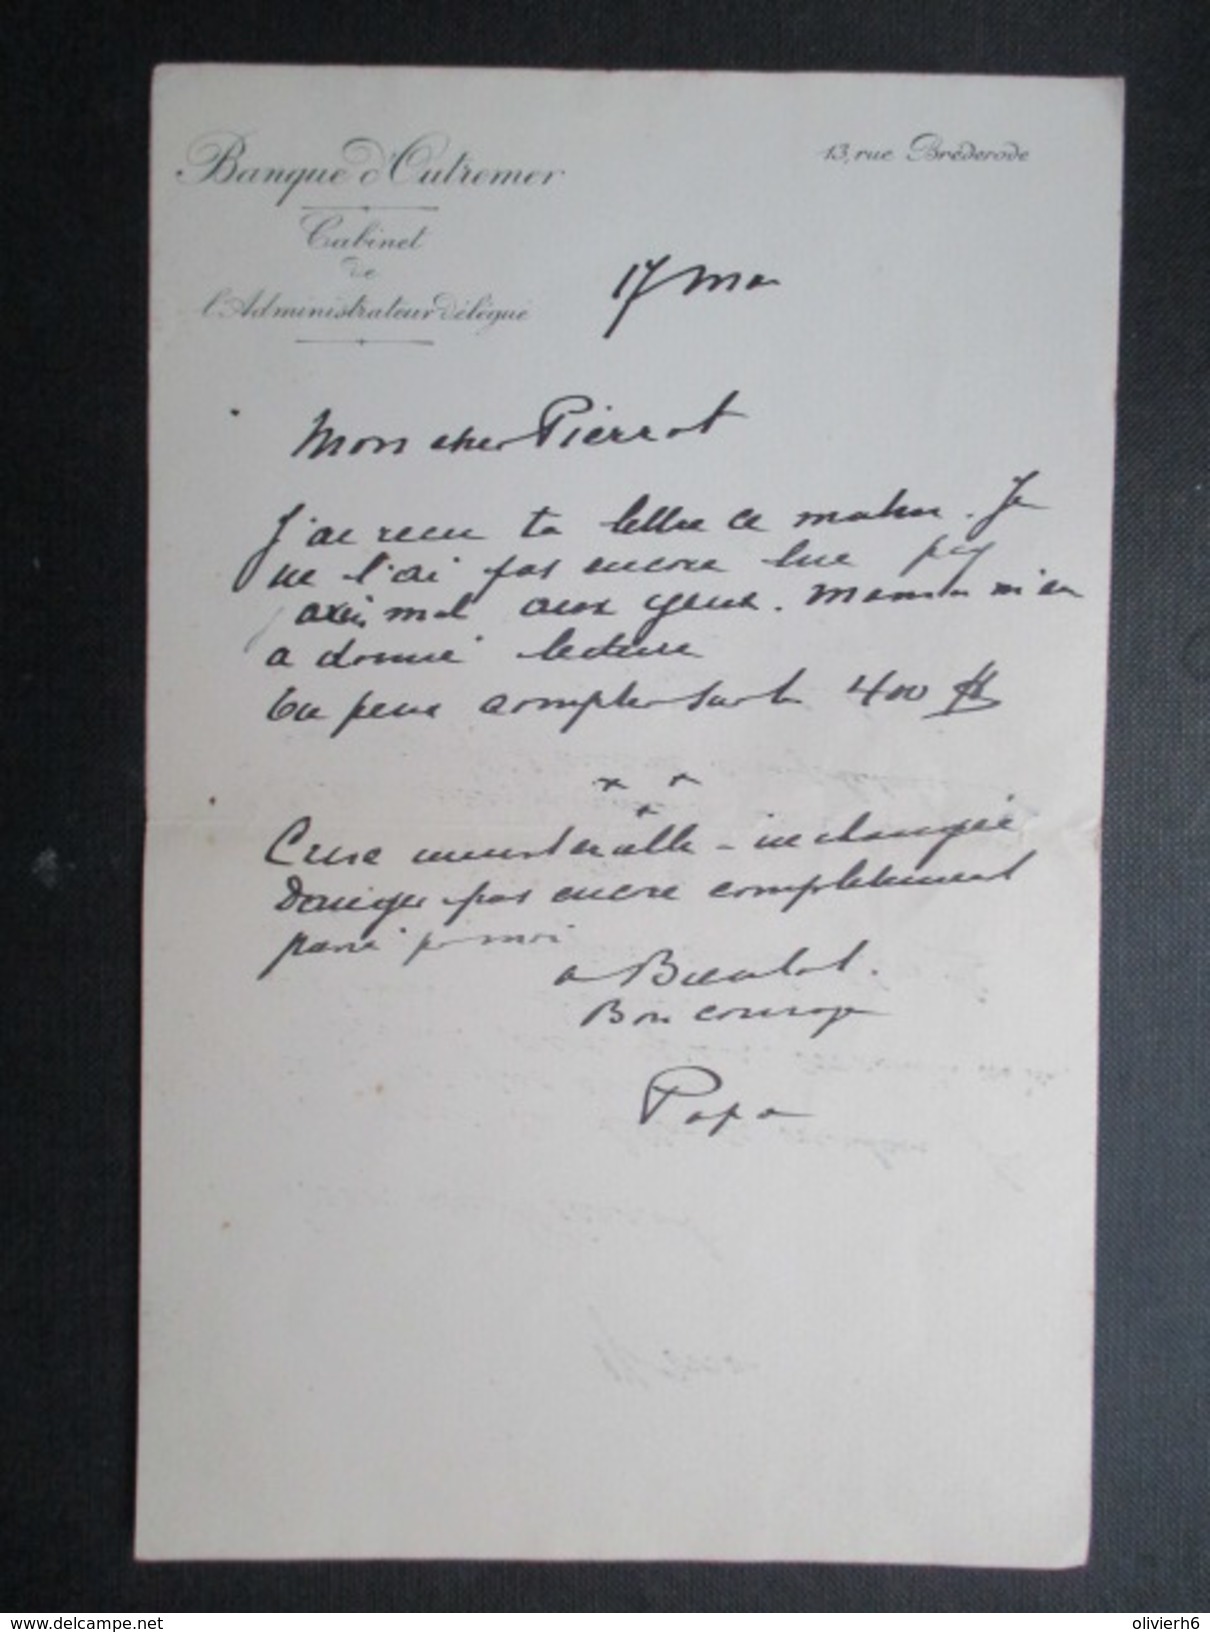 Banque d'Outremer
13, rue Bréderode
Cabinet
de
l'Administrateur Délégué
17 Mai
Mon cher Pierrot
J'ai reçu ta lettre ce matin. Je
ne l'ai pas encore lue
mal aux yeux. Maman m'en
a donné lecture
Tu peux compter sur 400
Crise ministérielle - inchangée
Danger pas encore complètement
passé pr moi
a Bientot.
Bon courage
Papa
www.delcampe.net
olivierh6